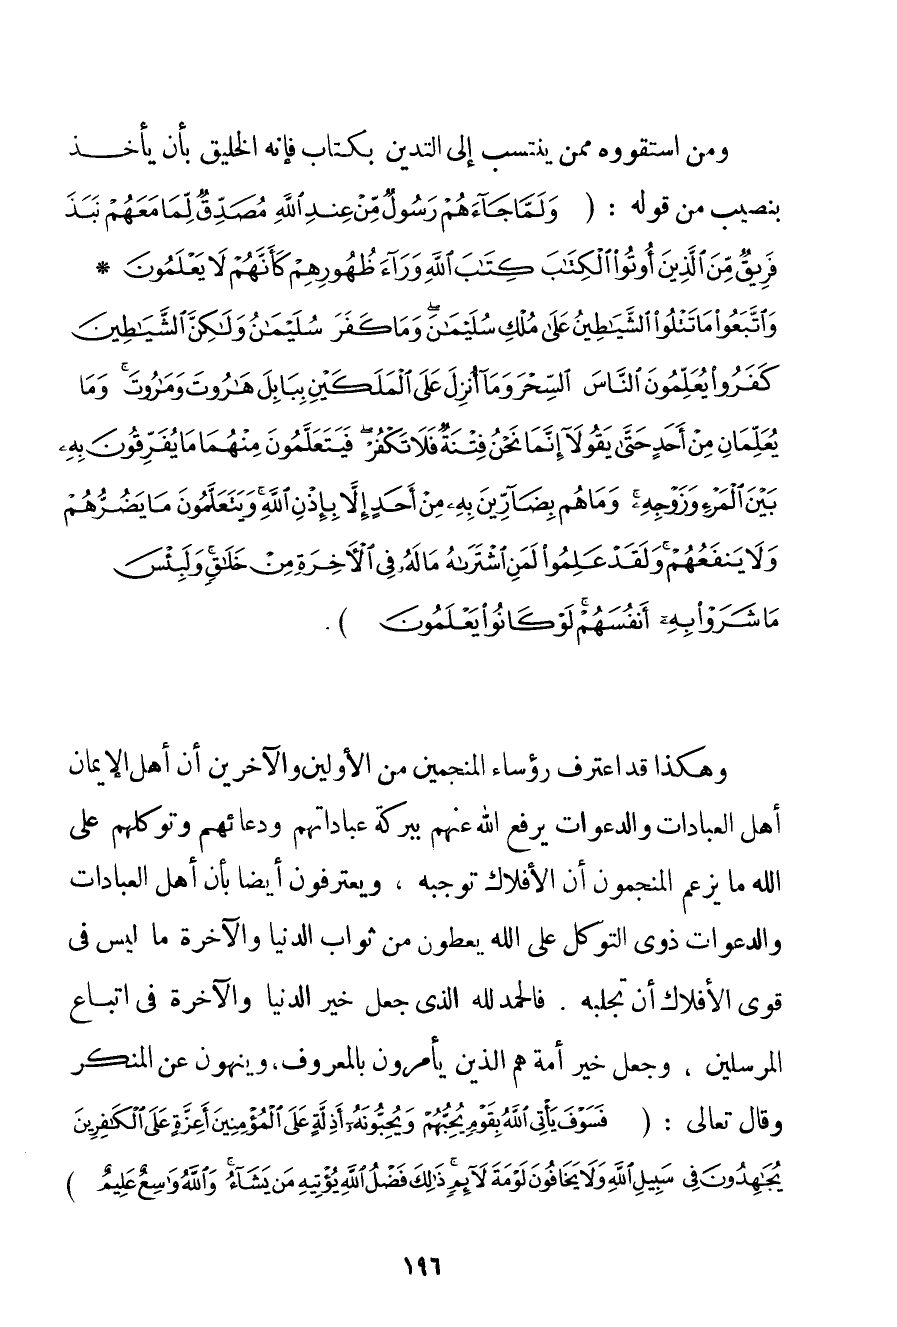 ومن استقووه ممن ينتسب إلى التدين بكتاب فإنه الخليق بأن يأخذ
بنصيب من قوله : ( وَلَمَّا جَآءَهُمْ رَسُولٌ مِّنْ عِندِ ٱللَّهِ مُصَدِّقٌ لِّمَا مَعَهُمْ نَبَذَ
فَرِيقٌ مِّنَ ٱلَّذِينَ أُوتُوا۟ ٱلْكِتَٰبَ كِتَٰبَ ٱللَّهِ وَرَآءَ ظُهُورِهِمْ كَأَنَّهُمْ لَا يَعْلَمُونَ *
وَٱتَّبَعُوا۟ مَا تَتْلُوا۟ ٱلشَّيَٰطِينُ عَلَىٰ مُلْكِ سُلَيْمَٰنَۖ وَمَا كَفَرَ سُلَيْمَٰنُ وَلَٰكِنَّ ٱلشَّيَٰطِينَ
كَفَرُوا۟ يُعَلِّمُونَ ٱلنَّاسَ ٱلسِّحْرَ وَمَآ أُنزِلَ عَلَى ٱلْمَلَكَيْنِ بِبَابِلَ هَٰرُوتَ وَمَٰرُوتَۚ وَمَا
يُعَلِّمَانِ مِنْ أَحَدٍ حَتَّىٰ يَقُولَآ إِنَّمَا نَحْنُ فِتْنَةٌ فَلَا تَكْفُرْۖ فَيَتَعَلَّمُونَ مِنْهُمَا مَا يُفَرِّقُونَ بِهِۦ
بَيْنَ ٱلْمَرْءِ وَزَوْجِهِۦۚ وَمَا هُم بِضَآرِّينَ بِهِۦ مِنْ أَحَدٍ إِلَّا بِإِذْنِ ٱللَّهِۚ وَيَتَعَلَّمُونَ مَا يَضُرُّهُمْ
وَلَا يَنفَعُهُمْۚ وَلَقَدْ عَلِمُوا۟ لَمَنِ ٱشْتَرَىٰهُ مَا لَهُۥ فِى ٱلْآخِرَةِ مِنْ خَلَٰقٍۚ وَلَبِئْسَ
مَا شَرَوْا۟ بِهِۦٓ أَنفُسَهُمْۚ لَوْ كَانُوا۟ يَعْلَمُونَ ) .
وهكذا قد اعترف رؤساء المنجمين من الأولين والآخرين أن أهل الإيمان
أهل العبادات والدعوات يرفع الله عنهم ببركة عباداتهم ودعائهم وتوكلهم على
الله ما يزعم المنجمون أن الأفلاك توجبه ، ويعترفون أيضا بأن أهل العبادات
والدعوات ذوى التوكل على الله يعطون من ثواب الدنيا والآخرة ما ليس فى
قوى الأفلاك أن تجلبه . فالحمد لله الذى جعل خير الدنيا والآخرة فى اتباع
المرسلين ، وجعل خير أمة هم الذين يأمرون بالمعروف، وينهون عن المنكر
وقال تعالى : ( فَسَوْفَ يَأْتِى ٱللَّهُ بِقَوْمٍ يُحِبُّهُمْ وَيُحِبُّونَهُۥٓ أَذِلَّةٍ عَلَى ٱلْمُؤْمِنِينَ أَعِزَّةٍ عَلَى ٱلْكَٰفِرِينَ
يُجَٰهِدُونَ فِى سَبِيلِ ٱللَّهِ وَلَا يَخَافُونَ لَوْمَةَ لَآئِمٍۚ ذَٰلِكَ فَضْلُ ٱللَّهِ يُؤْتِيهِ مَن يَشَآءُۚ وَٱللَّهُ وَٰسِعٌ عَلِيمٌ )
١٩٦